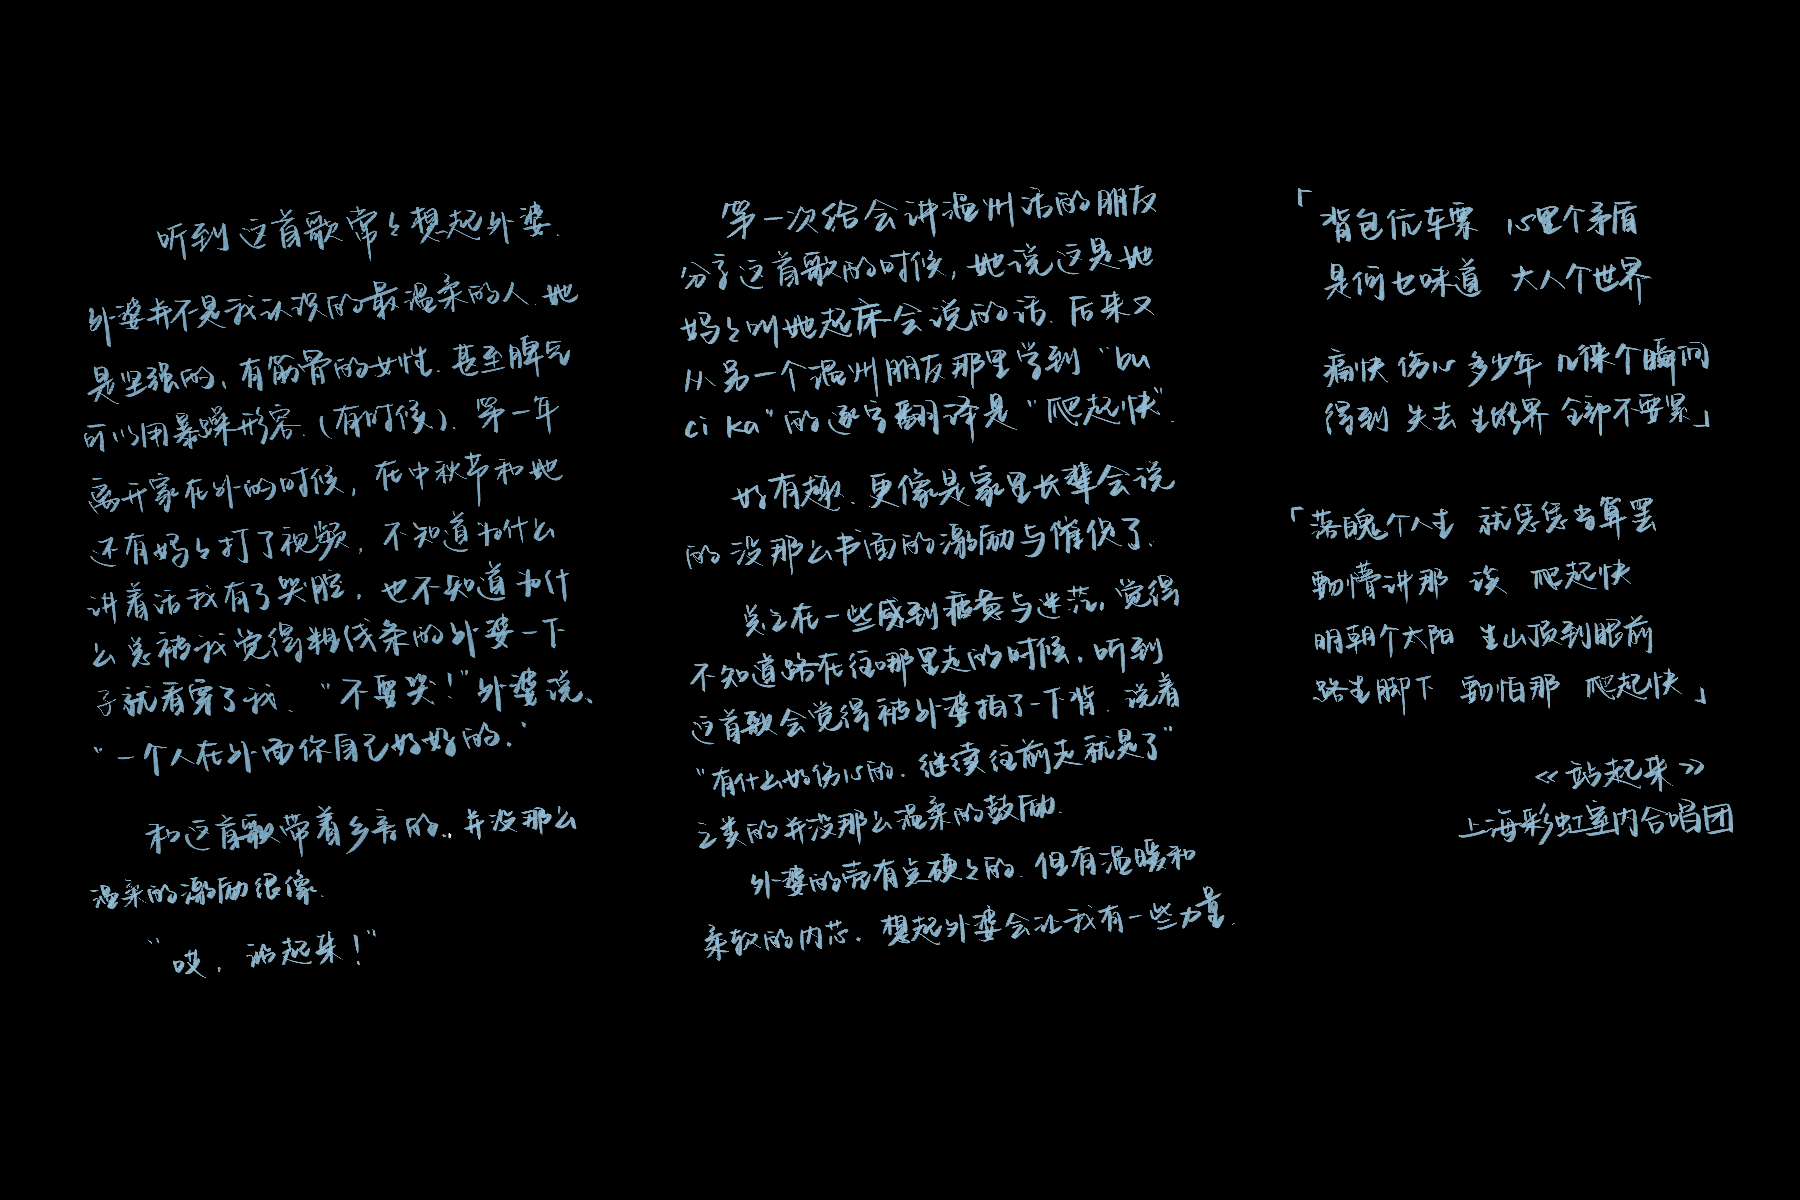 听到这首歌常々想起外婆.
外婆并不是我认识的最温柔的人.她
是坚强的、有筋骨的女性.甚至脾气
可以用暴躁形容.(有时候).第一年
离开家在外的时候,在中秋节和她
还有妈々打了视频,不知道为什么
讲着话我有了哭腔,也不知道为什
么总被我觉得粗线条的外婆一下
子就看穿了我.“不要哭!”外婆说、
“一个人在外面你自己好好的.”
和这首歌带着乡音的..并没那么
温柔的激励很像.
“哎,站起来!”
第一次给会讲温州话的朋友
分享这首歌的时候,她说这是她
妈々叫她起床会说的话.后来又
从另一个温州朋友那里学到“bu
ci ka”的逐字翻译是“爬起快”.
好有趣.更像是家里长辈会说
的没那么书面的激励与催促了.
总之在一些感到疲惫与迷茫,觉得
不知道路在往哪里走的时候.听到
这首歌会觉得被外婆拍了一下背.说着
“有什么好伤心的.继续往前走就是了”
之类的并没那么温柔的鼓励.
外婆的壳有点硬々的.但有温暖和
柔软的内芯.想起外婆会让我有一些力量.
「背包伉车票 心里个矛盾
是何乜味道 大人个世界
痛快 伤心 多少年 几徕个瞬间
得到 失去 生能界 全部不要紧」
「落魄个人生 就恁恁当算罢
覅懵讲那 诶 爬起快
明朝个太阳 生山顶到眼前
路生脚下 覅怕那 爬起快」
《站起来》
上海彩虹室内合唱团